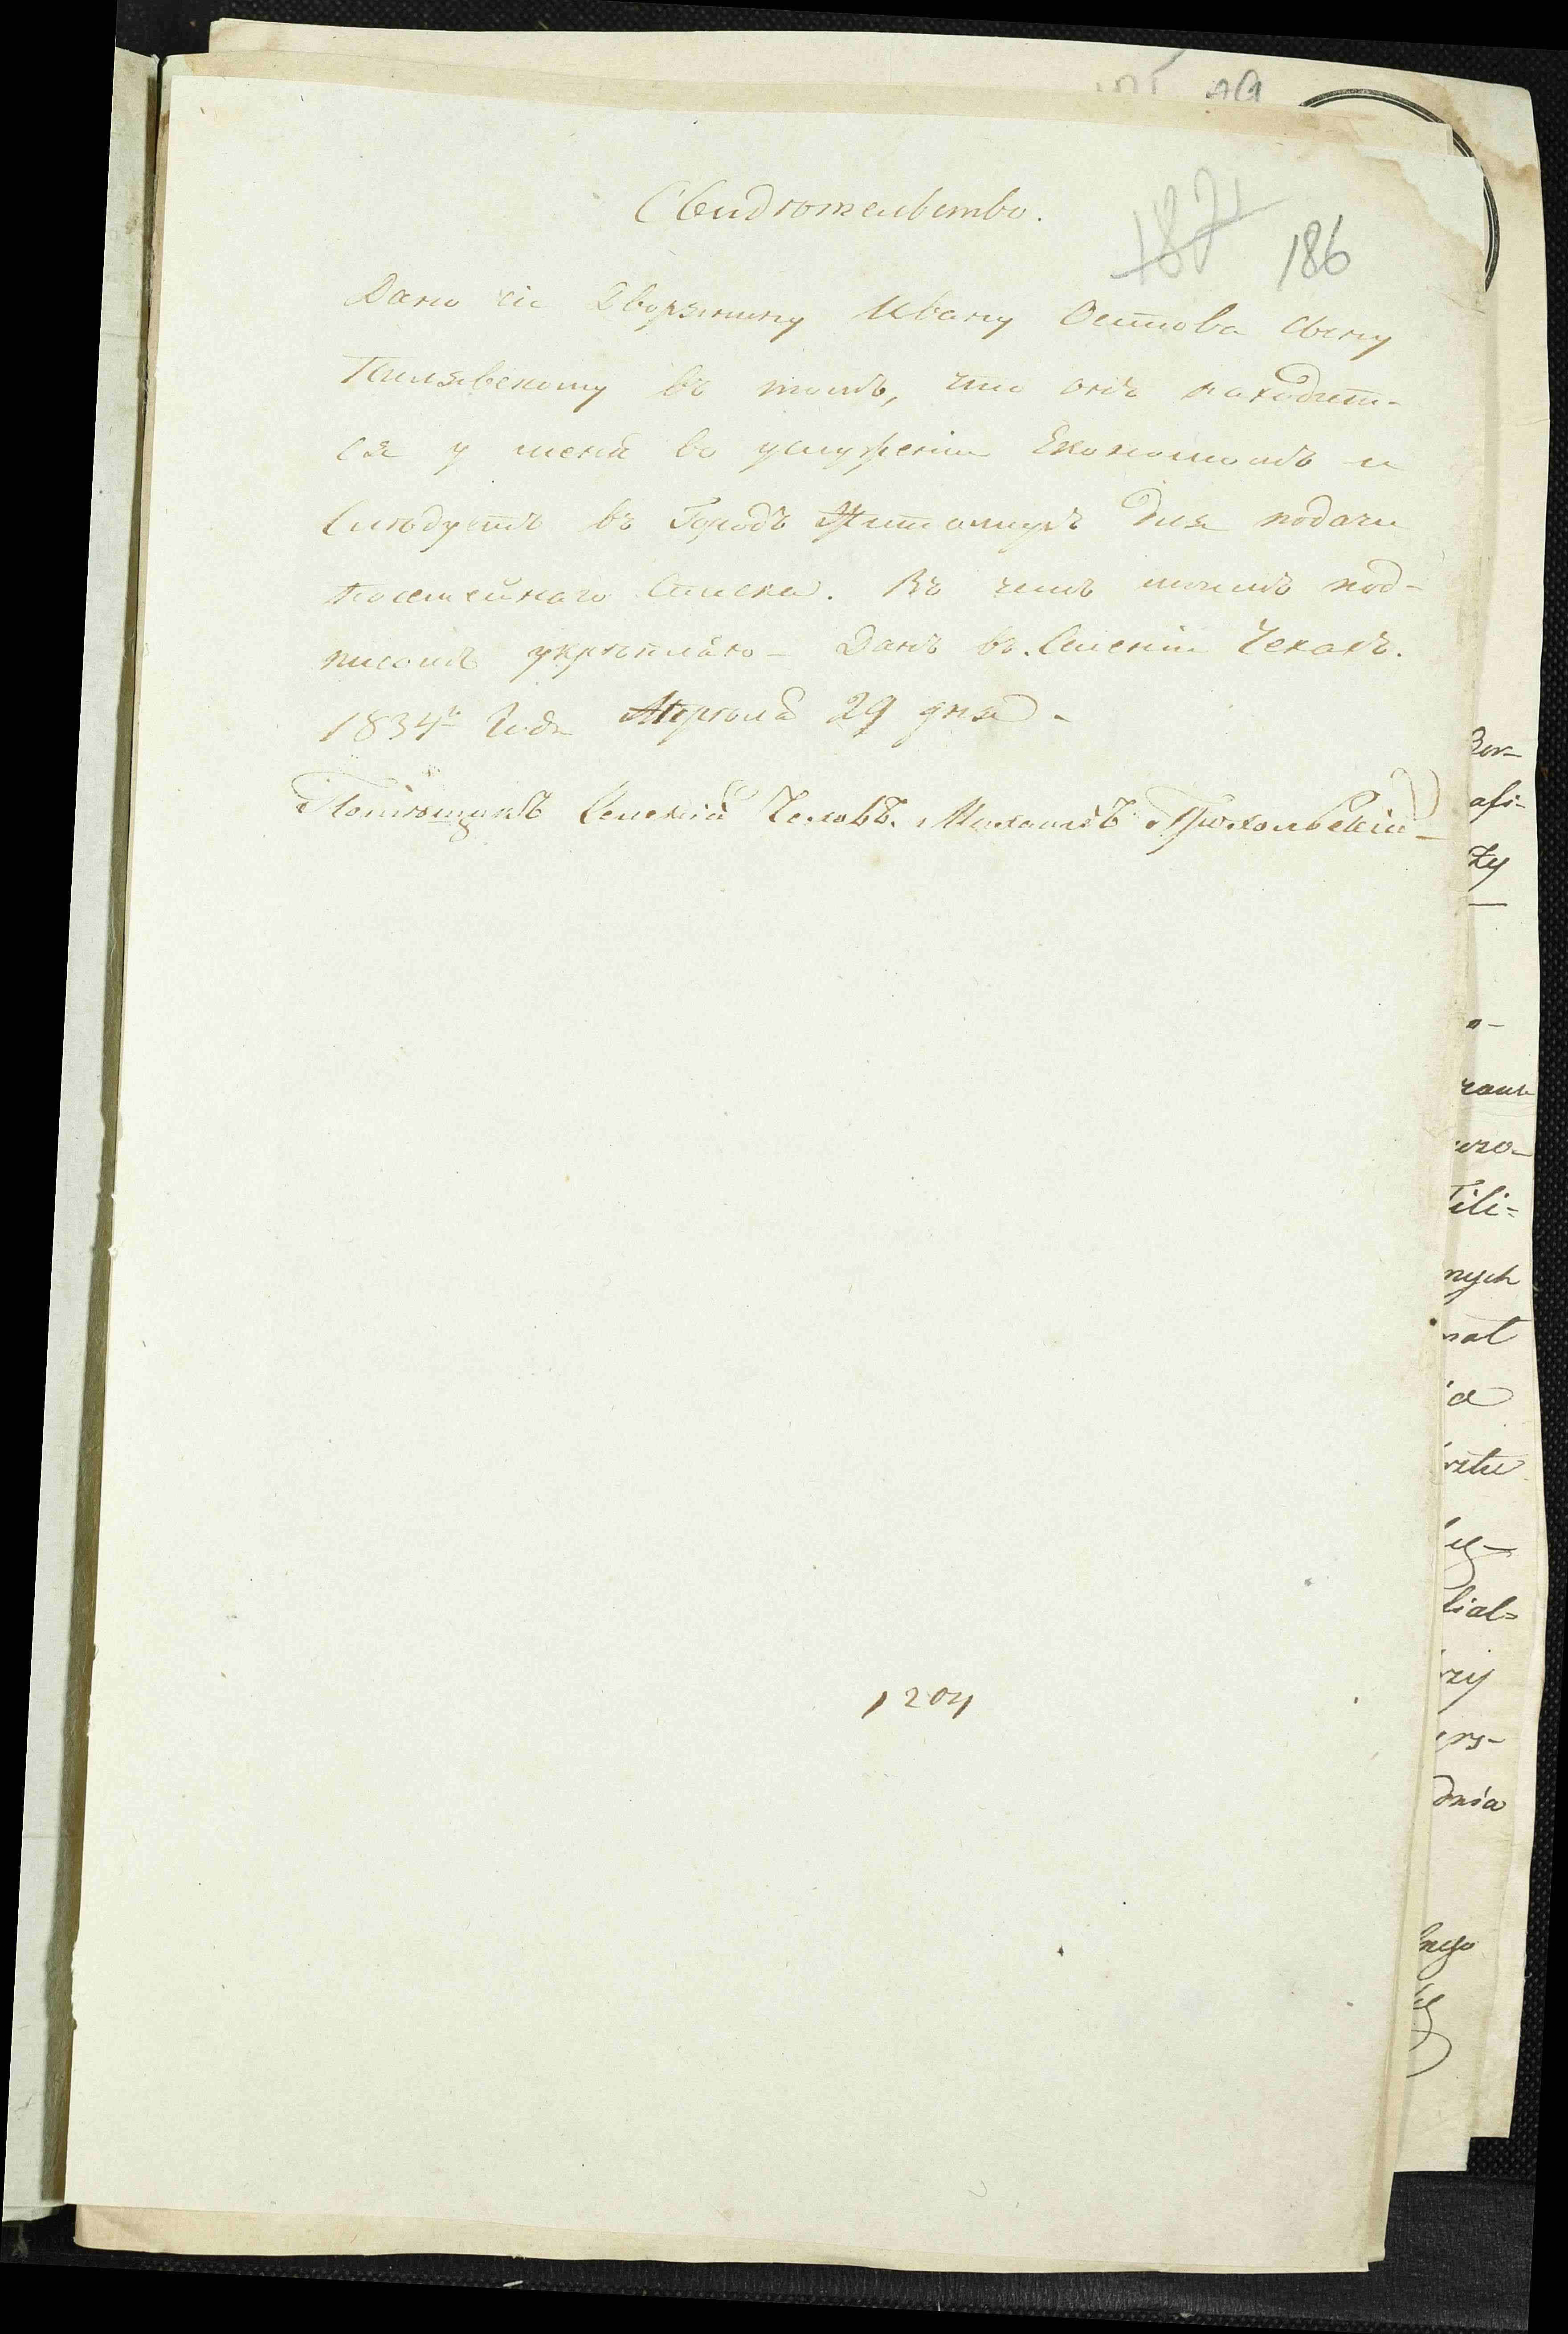 Свидѣтельство.
187 186
Дано сіе Дворянину Ивану Осипова Сыну
Пилявскому въ томъ, что онъ находит-
ся у меня во услуженіи Економомъ и
Слѣдуетъ въ Городъ Житомиръ для подачи
Посемейнаго Списка. Въ чемъ моимъ под-
писомъ укрѣпляю – Данъ въ. Селеніи Чехахъ.
1834го Года Апрѣля 29 дня –
Помѣщикъ Селенія Михаилъ
1204